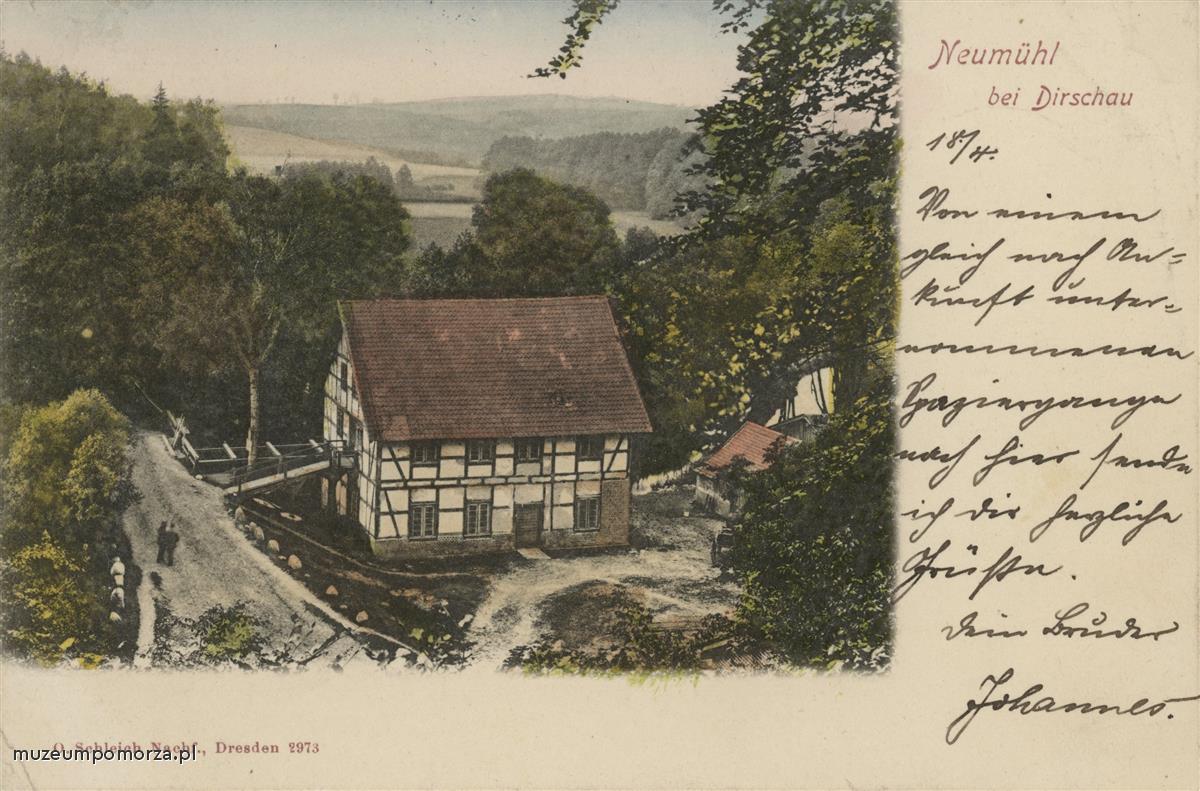 Neumühl
bei Dirschau
18./4.
Von einem
gleich nach An=
kunft unter=
nommenen
Spaziergange
nach hier sende
ich dir herzliche
Grüße.
dein Bruder
Johannes.
O. Schleich Nachf., Dresden 2973
muzeumpomorza.pl